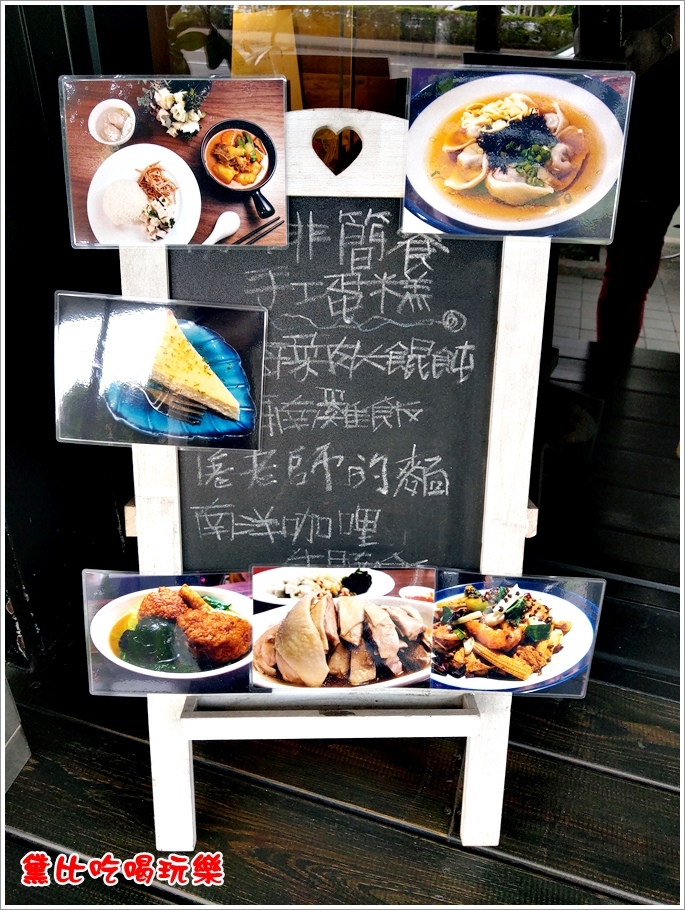 啡簡食
手工蛋糕
菜肉大餛飩
雞飯
老師的麵
南洋咖哩
黛比吃喝玩樂